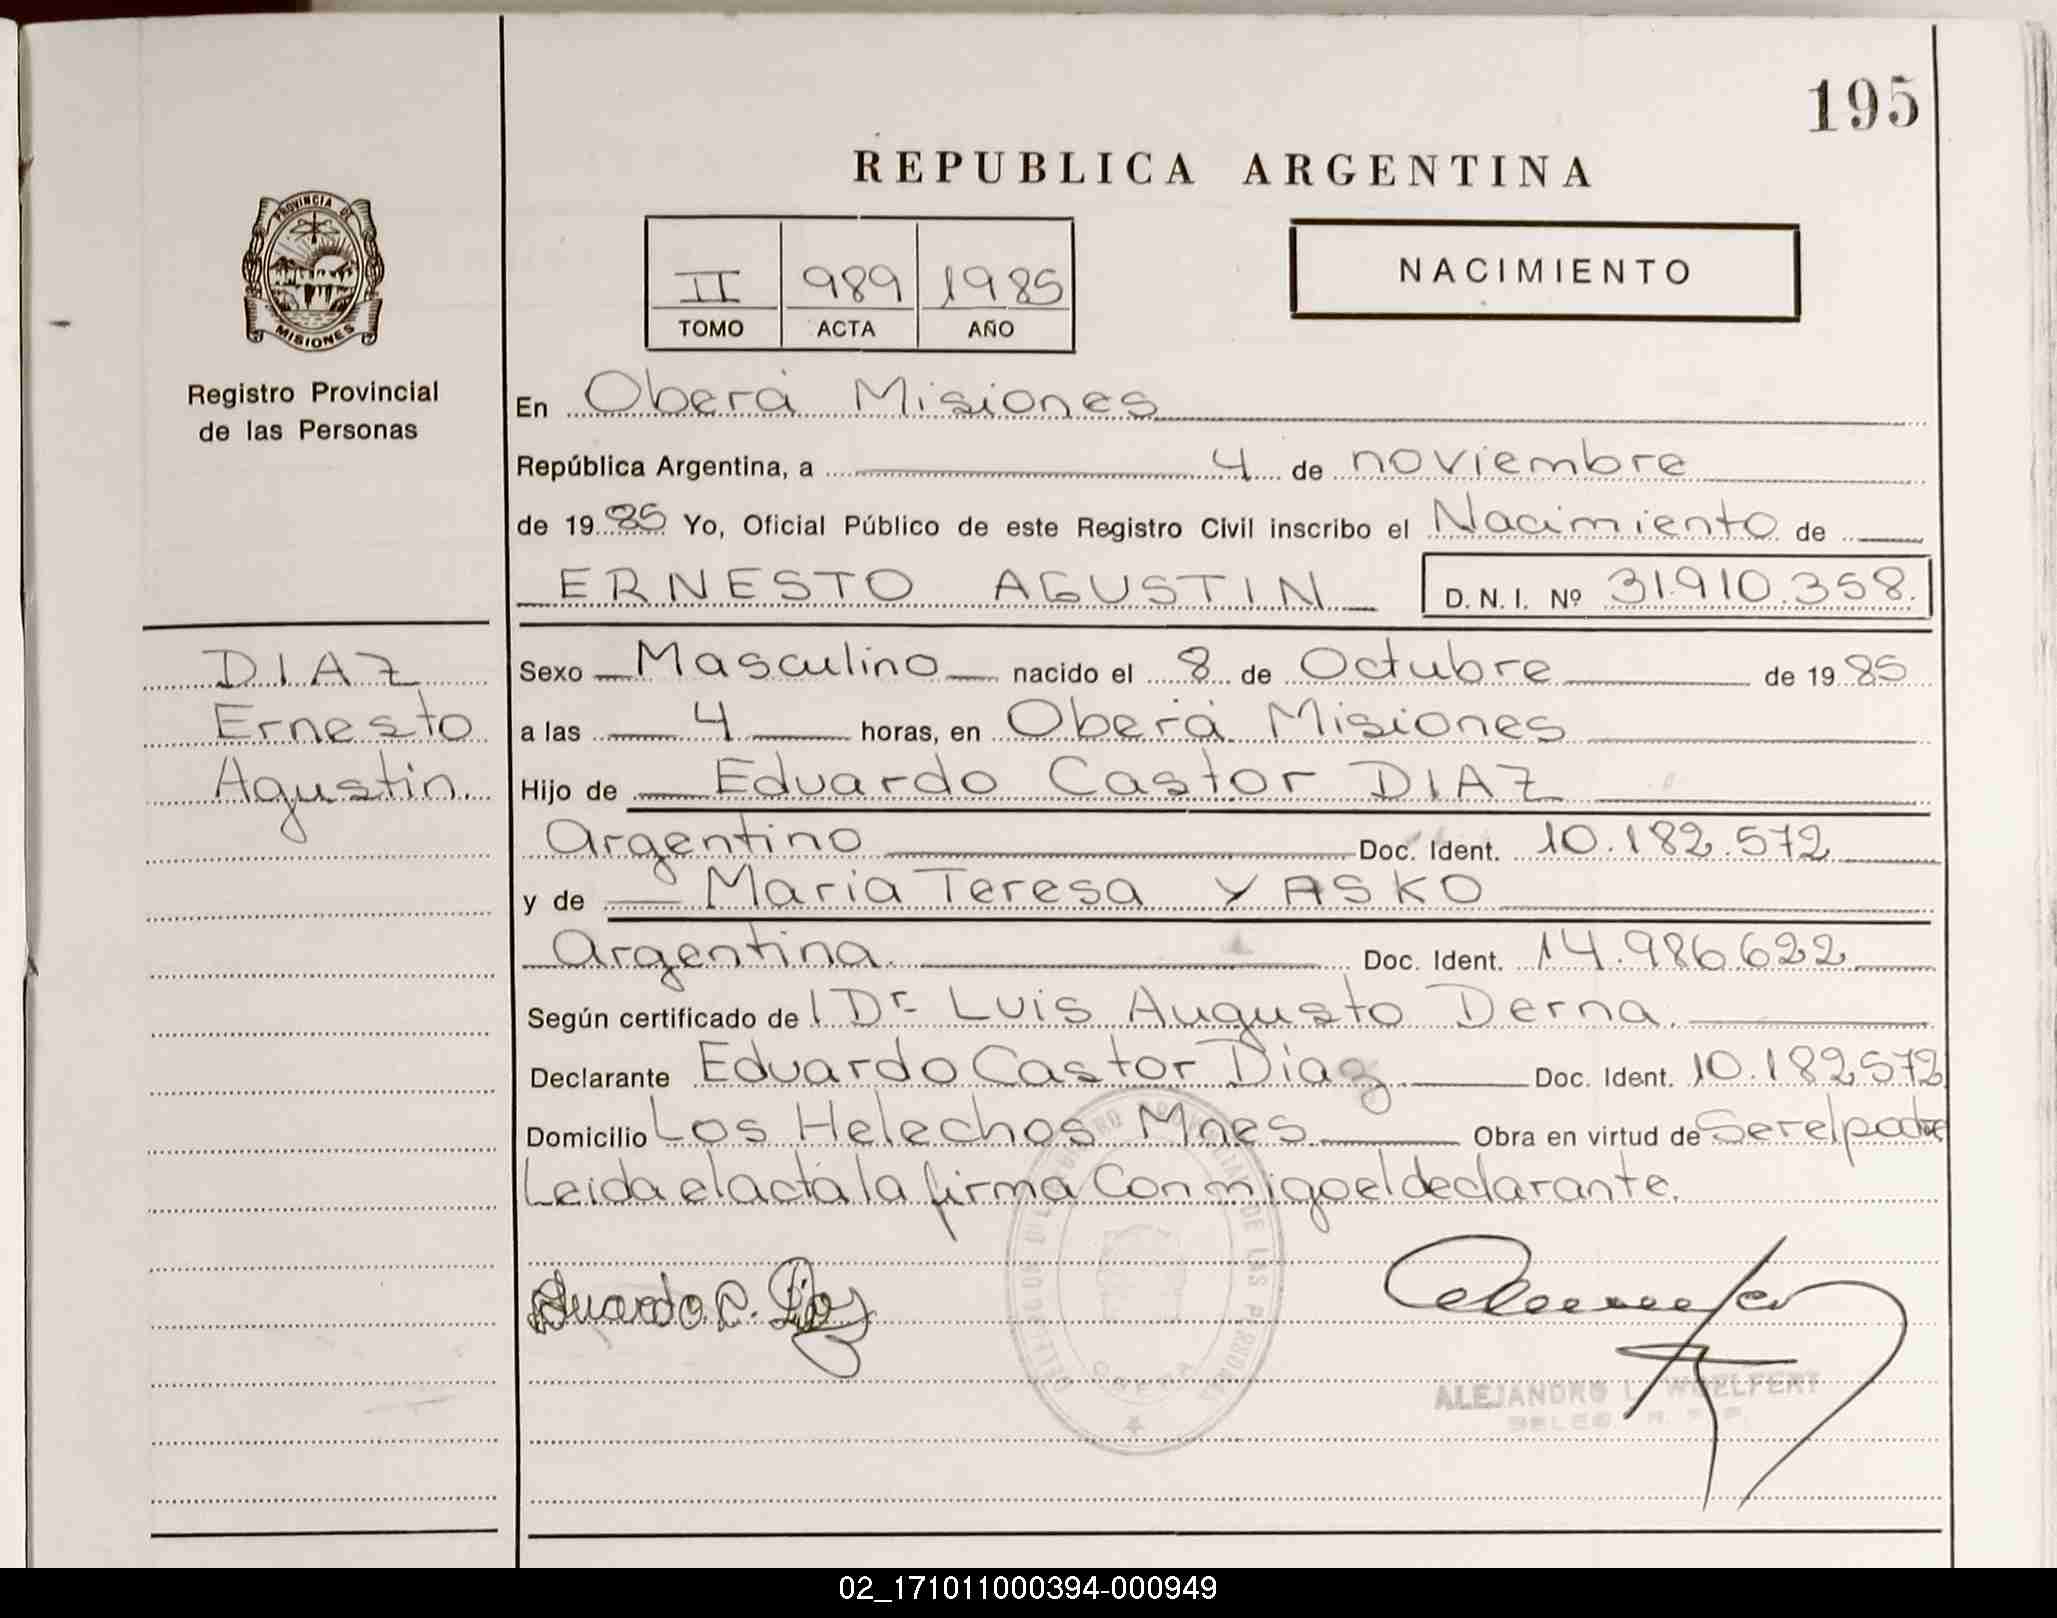 195
REPUBLICA ARGENTINA
PROVINCIA DE
MISIONES
Registro Provincial
de las Personas
II 989 1985
TOMO ACTA AÑO
NACIMIENTO
En Oberá Misiones
República Argentina, a 4 de noviembre
de 19 85 Yo, Oficial Público de este Registro Civil inscribo el Nacimiento de
ERNESTO AGUSTIN D.N.I. Nº 31.910.358.
DIAZ
Ernesto
Agustin.
Sexo Masculino nacido el 8 de Octubre de 19 85
a las 4 horas, en Oberá Misiones
Hijo de Eduardo Castor DIAZ
Argentino Doc. Ident. 10.182.572
y de Maria Teresa YASKO
Argentina. Doc. Ident. 14.986.622
Según certificado de l Dr Luis Augusto Derna.
Declarante Eduardo Castor Diaz Doc. Ident. 10.182.572
Domicilio Los Helechos Mnes Obra en virtud de Ser el padre
Leida el acta la firma Conmigo el declarante.
Eduardo C. Diaz
OBERA
ALEJANDRO L. WOELFERT
02_171011000394-000949